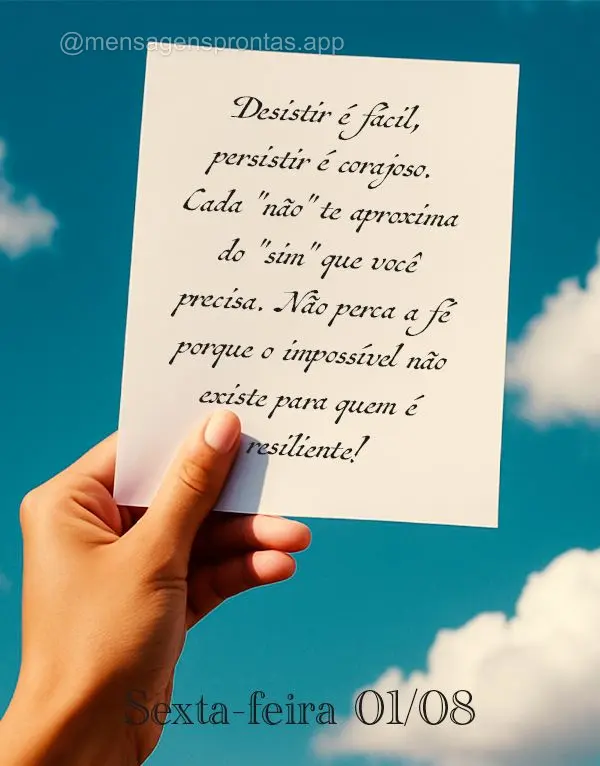 @mensagensprontas.app
Desistir é fácil,
persistir é corajoso.
Cada "não" te aproxima
do "sim" que você
precisa. Não perca a fé
porque o impossível não
existe para quem é
resiliente!
Sexta-feira 01/08